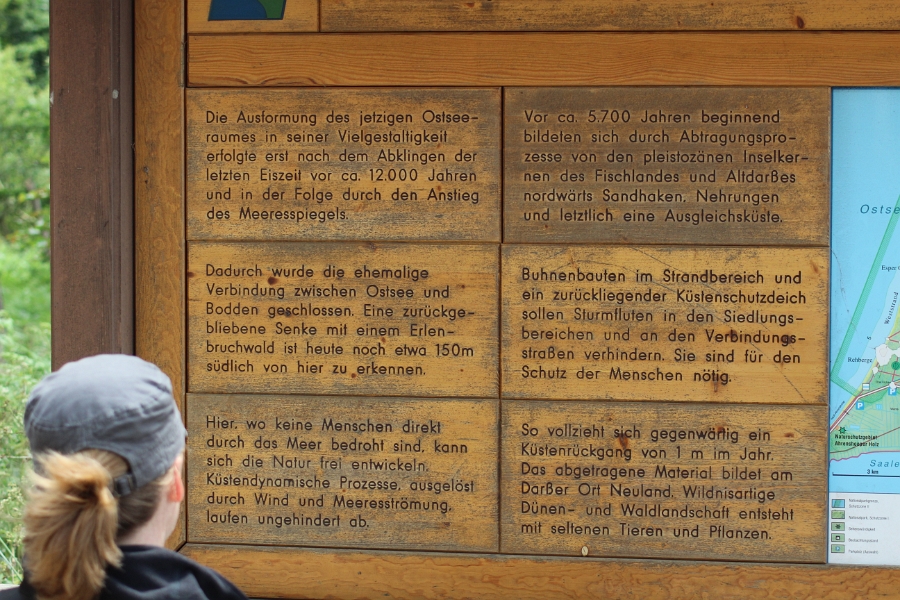 Die Ausformung des jetzigen Ostsee-
raumes in seiner Vielgestaltigkeit
erfolgte erst nach dem Abklingen der
letzten Eiszeit vor ca. 12.000 Jahren
und in der Folge durch den Anstieg
des Meeresspiegels.
Vor ca. 5.700 Jahren beginnend
bildeten sich durch Abtragungspro-
zesse von den pleistozänen Inselker-
nen des Fischlandes und Altdarßes
nordwärts Sandhaken, Nehrungen
und letztlich eine Ausgleichsküste.
Dadurch wurde die ehemalige
Verbindung zwischen Ostsee und
Bodden geschlossen. Eine zurückge-
bliebene Senke mit einem Erlen-
bruchwald ist heute noch etwa 150m
südlich von hier zu erkennen.
Buhnenbauten im Strandbereich und
ein zurückliegender Küstenschutzdeich
sollen Sturmfluten in den Siedlungs-
bereichen und an den Verbindungs-
straßen verhindern. Sie sind für den
Schutz der Menschen nötig.
Hier, wo keine Menschen direkt
durch das Meer bedroht sind, kann
sich die Natur frei entwickeln.
Küstendynamische Prozesse, ausgelöst
durch Wind und Meeresströmung,
laufen ungehindert ab.
So vollzieht sich gegenwärtig ein
Küstenrückgang von 1 m im Jahr.
Das abgetragene Material bildet am
Darßer Ort Neuland. Wildnisartige
Dünen- und Waldlandschaft entsteht
mit seltenen Tieren und Pflanzen.
Ostse
Esper
Weststrand
Rehberge
P
P
Naturschutzgebiet
Ahrenshooper Holz
Saale
3 km